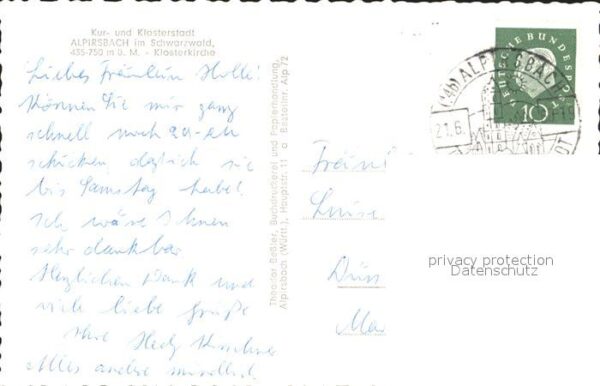 Kur- und Klosterstadt
ALPIRSBACH im Schwarzwald,
435-750 m ü. M. - Klosterkirche
Liebes Fräulein Holle!
Können Sie mir ganz
schnell noch
schicken, sie
bis Samstag habe!
Ich wäre Ihnen
sehr dankbar
Herzlichen Dank und
viele liebe Grüße
Ihre Hedy
Alles andere mündlich
Theodor Beßler, Buchdruckerei und Papierhandlung,
Alpirsbach (Württ.), Hauptstr. 11 o Bestellnr. Alp 72
DEUTSCHE BUNDESPOST
10
(14b) ALPIRSBACH
21.6.
Fräul
Luise
Dür
privacy protection
Datenschutz